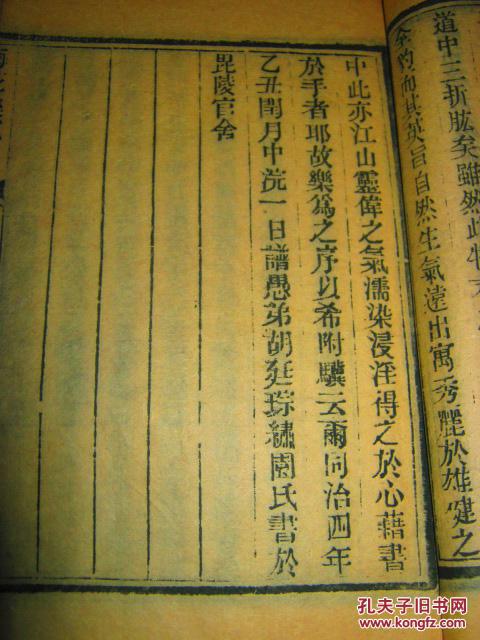 道中三折肱矣雖然此特
全豹而其英旨自然生氣遠出寓秀麗於雄健之
中此亦江山靈偉之氣濡染浸淫得之於心藉書
於手者耶故樂為之序以希附驥云爾同治四年
乙丑閏月中浣一日譜愚弟胡廷琮繡園氏書於
毘陵官舍
孔夫子旧书网
www.kongfz.com